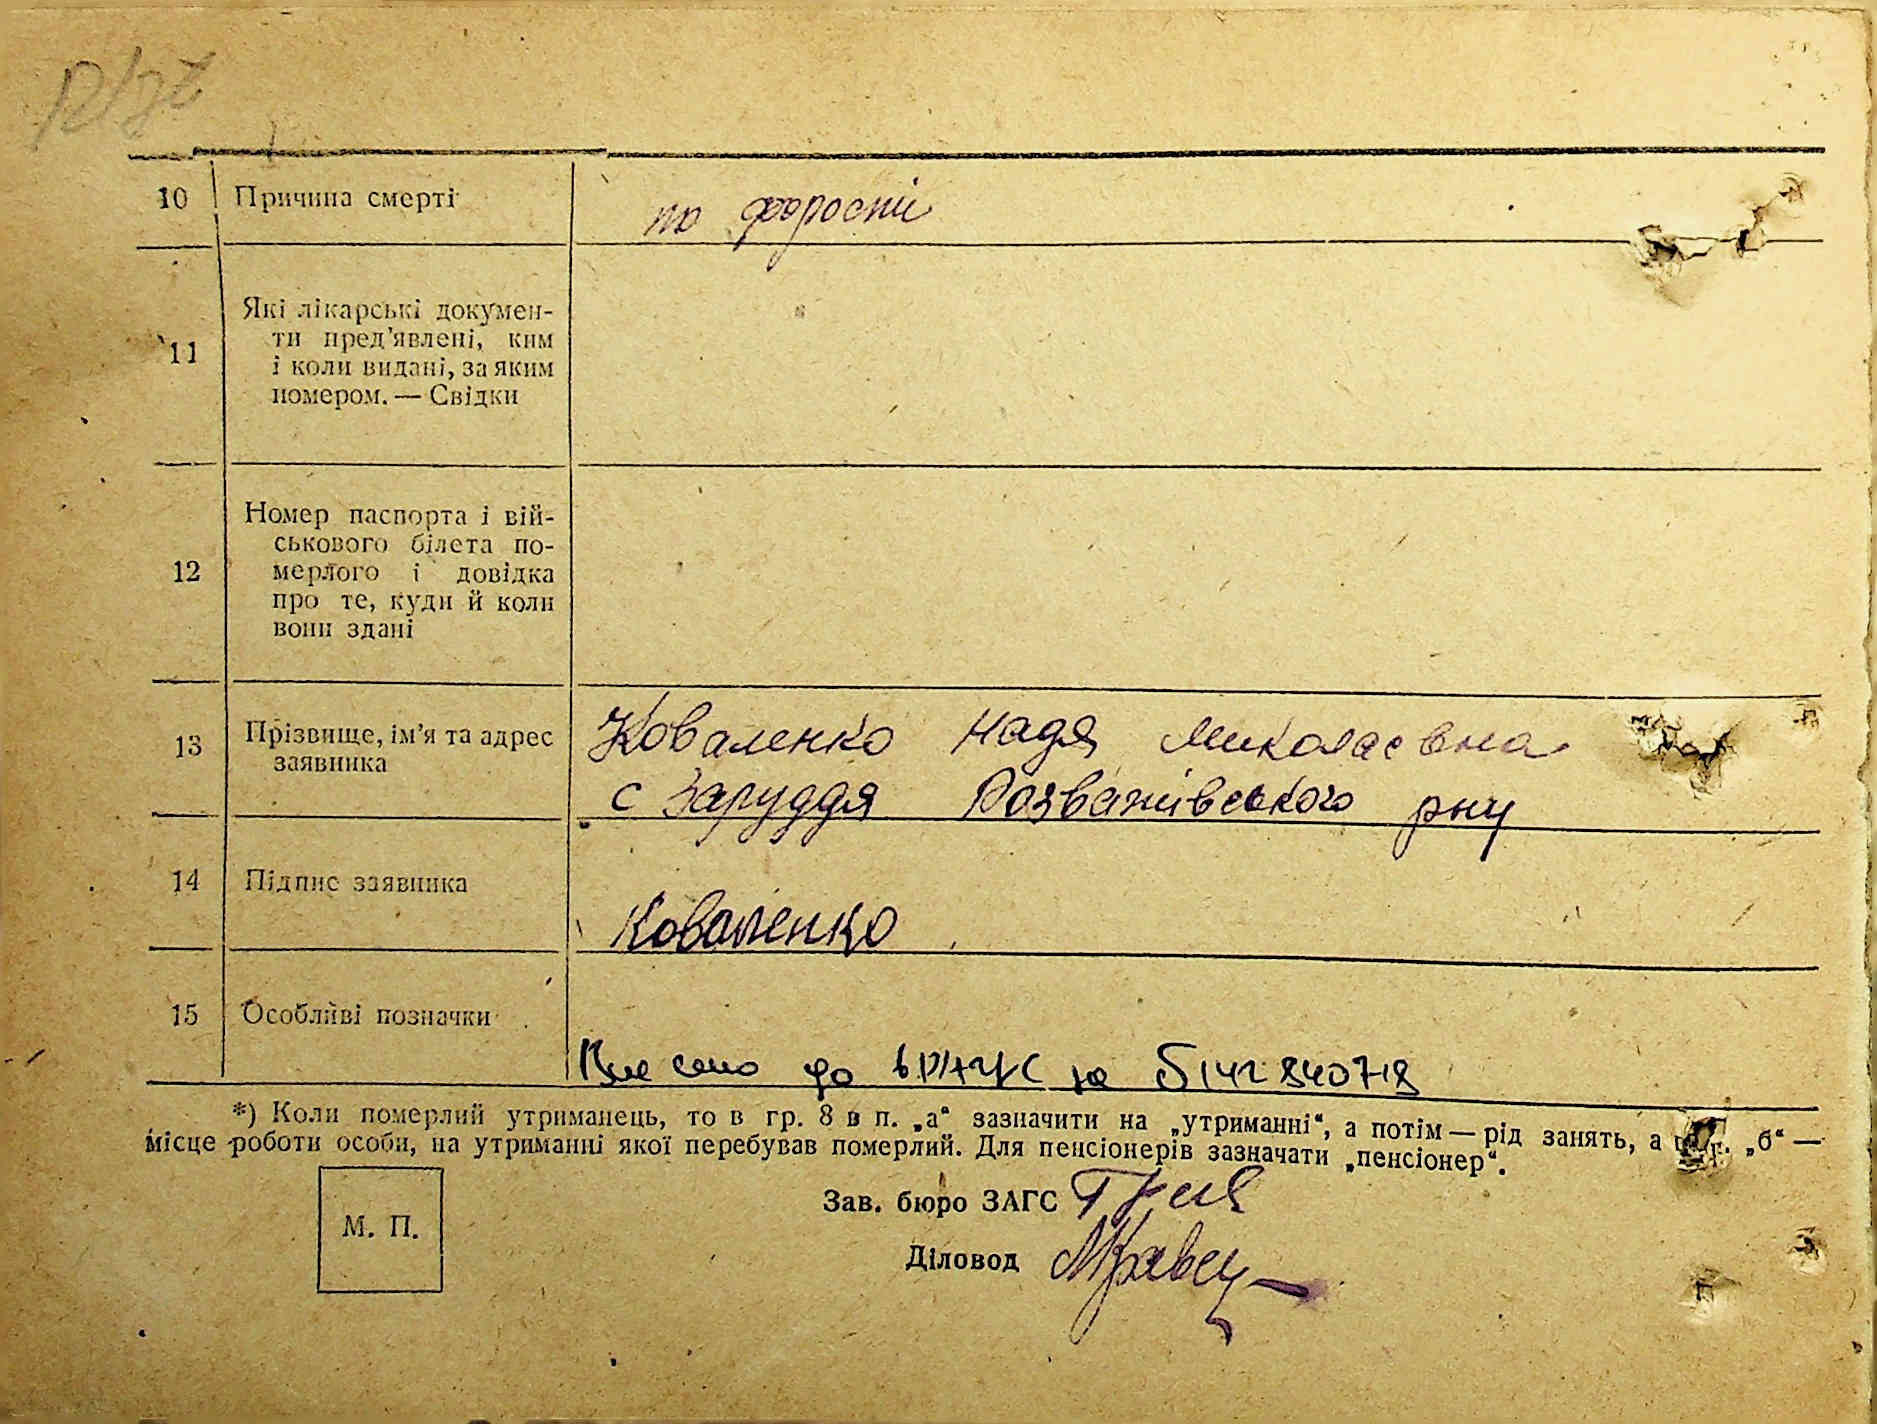 10 Причина смерті по старости
11 Які лікарські докумен-
ти пред'явлені, ким
і коли видані, за яким
номером. — Свідки
Номер паспорта і вій-
ськового білета по-
12 мерлого і довідка
про те, куди й коли
вони здані
13 Прізвище, ім'я та адрес
заявника
Коваленко Надя Миколаєвна
с Заруддя Розважівського рну
14 Підпис заявника
Коваленко
15 Особливі позначки
Внесено до ДРАЦС за 5142840718
*) Коли померлий утриманець, то в гр. 8 в п. „а“ зазначити на „утриманні“, а потім — рід занять, а „б“ —
місце роботи особи, на утриманні якої перебував померлий. Для пенсіонерів зазначати „пенсіонер“.
М. П.
Зав. бюро ЗАГС
Діловод МКравец